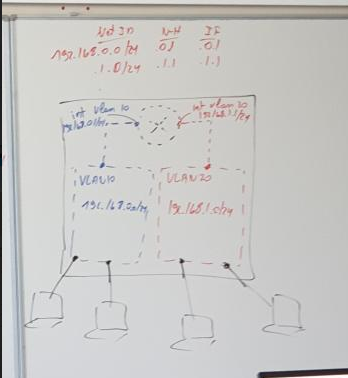 Net ID N-H IF
192.168.0.0/24 .0.1 .0.1
.1.0/24 .1.1 .1.1
int vlan 10
192.168.0.1/24
int vlan 20
192.168.1.1/24
VLAN10
192.168.0.0/24
VLAN20
192.168.1.0/24